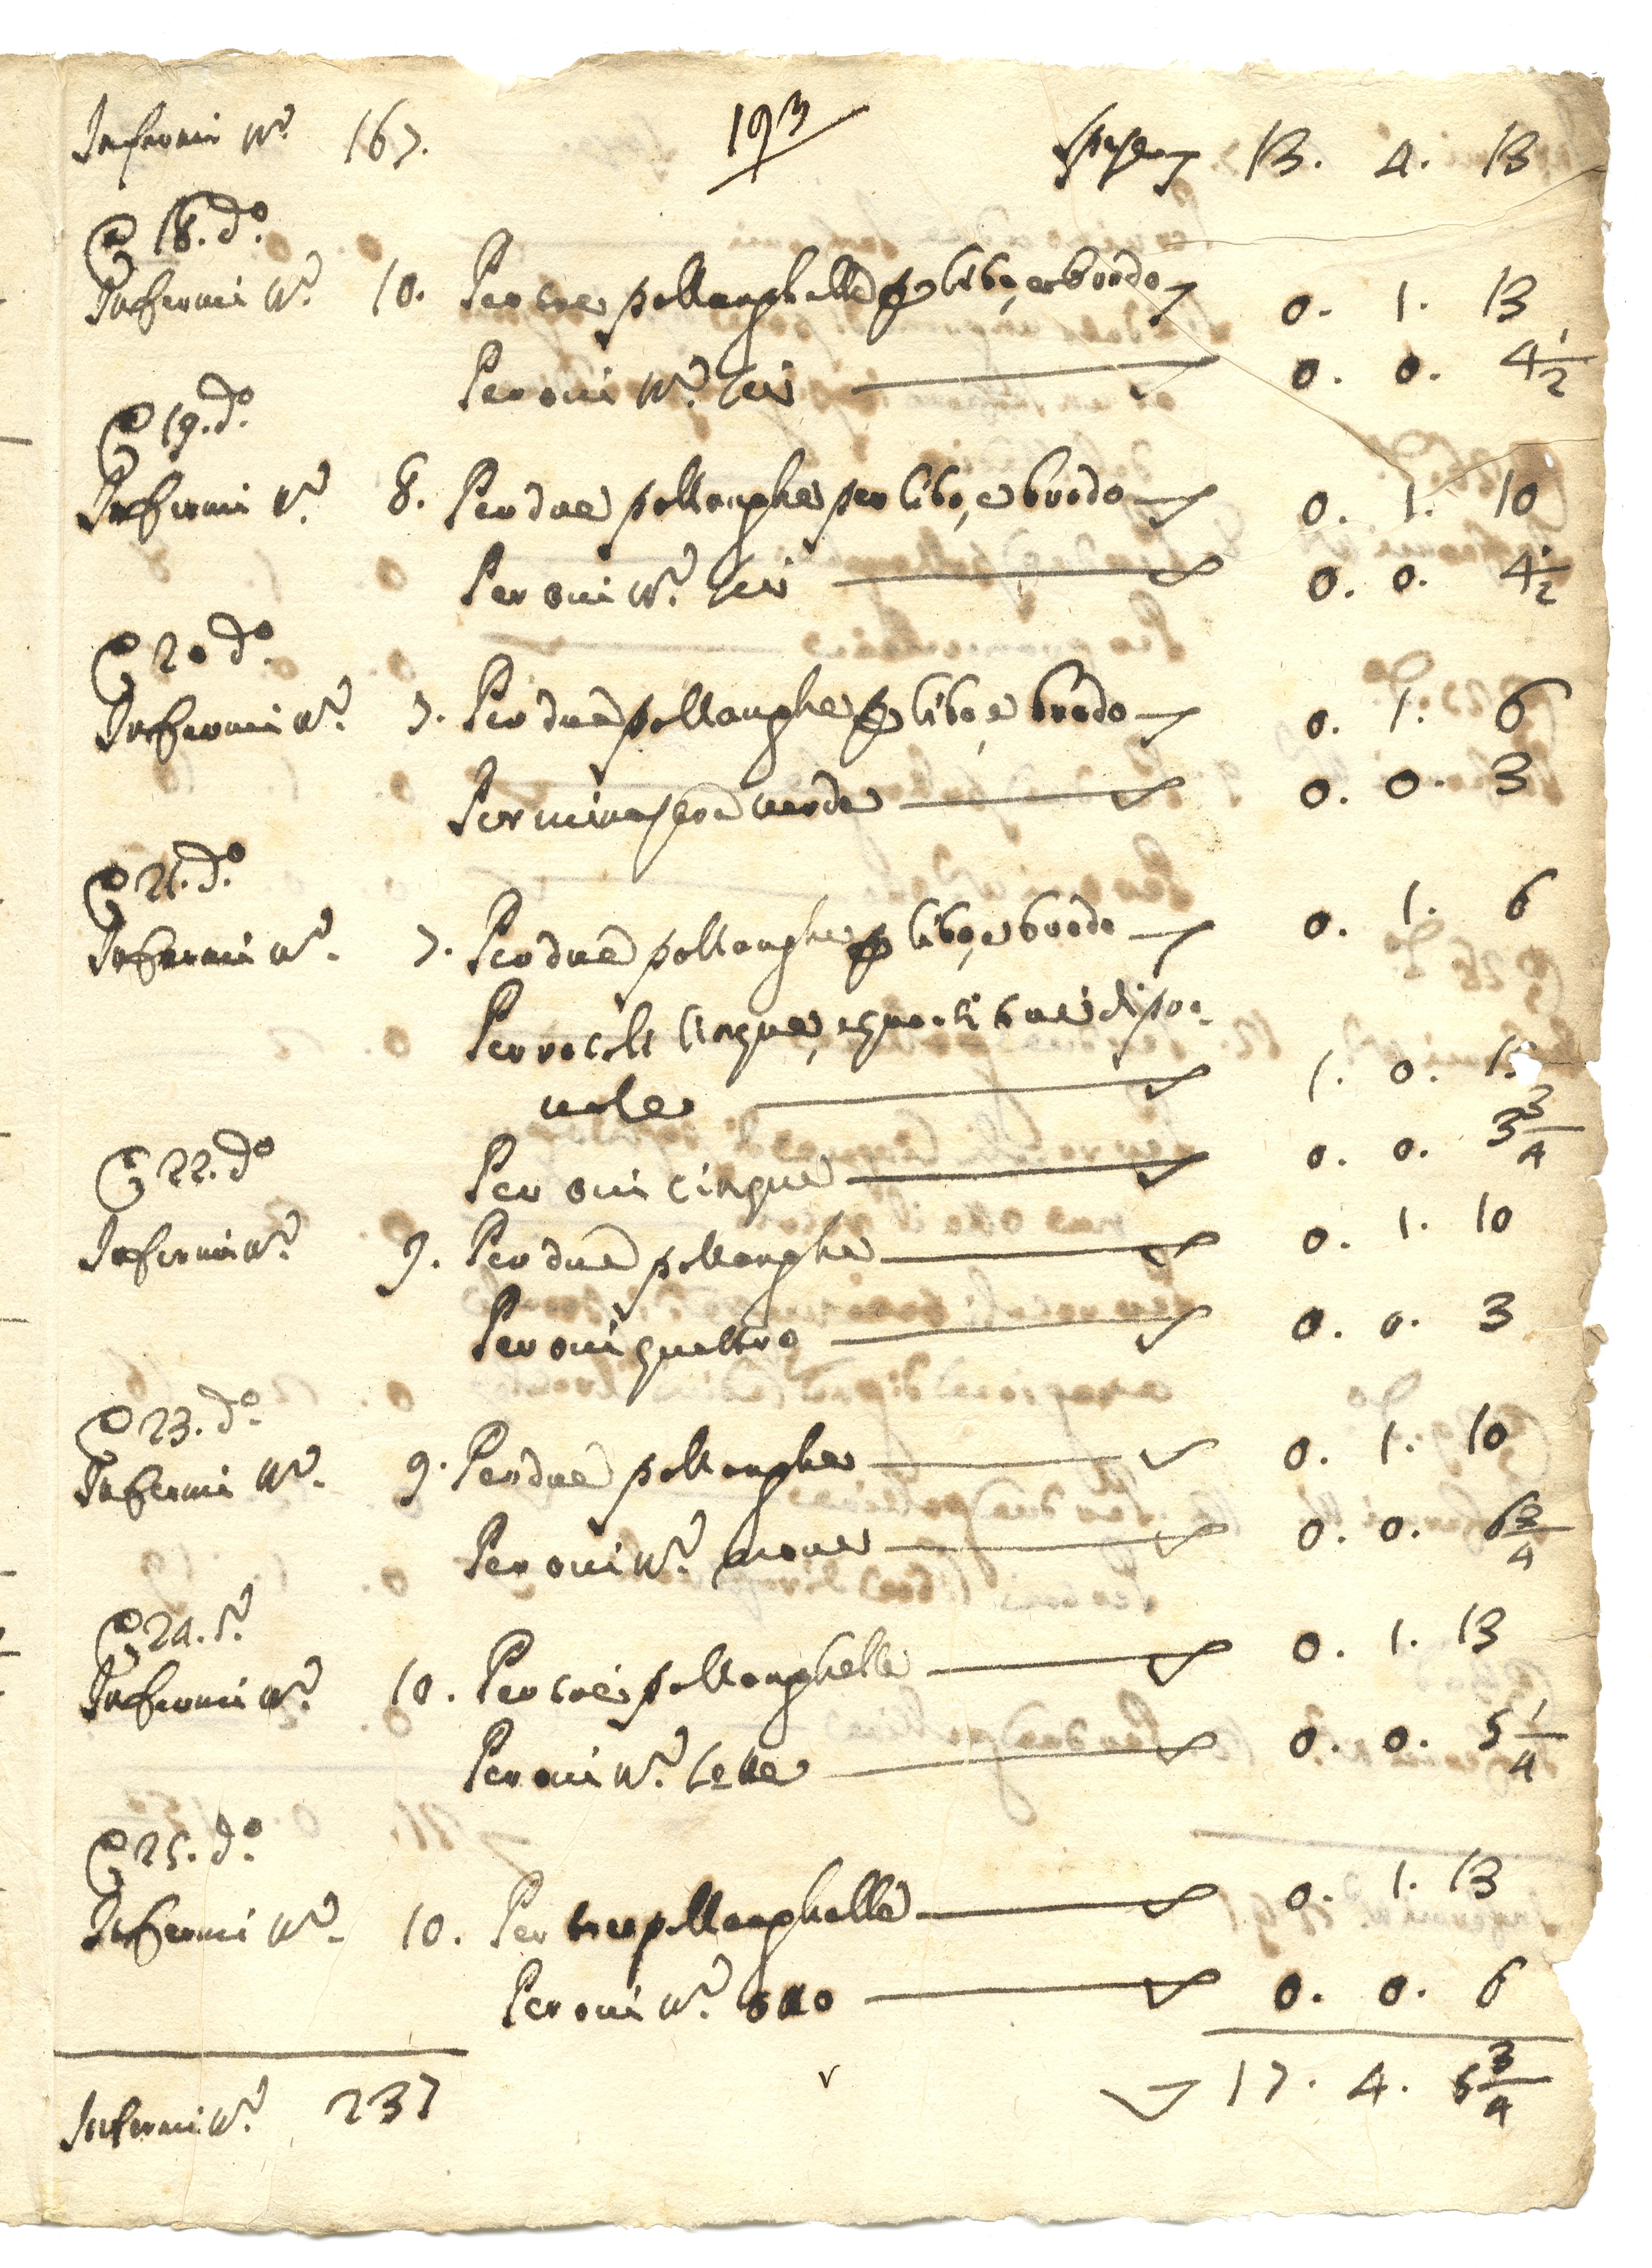 Infermi N.º 167. 193 Spesa 13. 4. 13
E 18. d.º
Infermi N.º 10. Per tre pollanghelle p cibo, e brodo 0. 1. 13
Per ovi N.º sei 0. 0. 4 1/2
E 19. d.º
Infermi N.º 8. Per due pollanghe per cibo, e brodo 0. 1. 10
Per ovi N.º sei 0. 0. 4 1/2
E 20 d.º
Infermi N.º 7. Per due pollanghe p cibo, e brodo 0. 1. 6
Per minestra verde 0. 0. 3
E 21. d.º
Infermi N.º 7. Per due pollanghe p cibo, e brodo 0. 1. 6
Per rotoli cinque, e quarti tre di
vola 1. 0.
Per ovi cinque 0. 0. 3 3/4
E 22. d.º
Infermi N.º 9. Per due pollanghe 0. 1. 10
Per ovi quattro 0. 0. 3
E 23. d.º
Infermi N.º 9. Per due pollanghe 0. 1. 10
Per ovi N.º nove 0. 0. 6 3/4
E 24. d.º
Infermi N.º 10. Per tre pollanghelle 0. 1. 13
Per ovi N.º sette 0. 0. 5 1/4
E 25. d.º
Infermi N.º 10. Per tre pollanghelle 0. 1. 13
Per ovi N.º otto 0. 0. 6
Infermi N.º 237 17. 4. 5 3/4